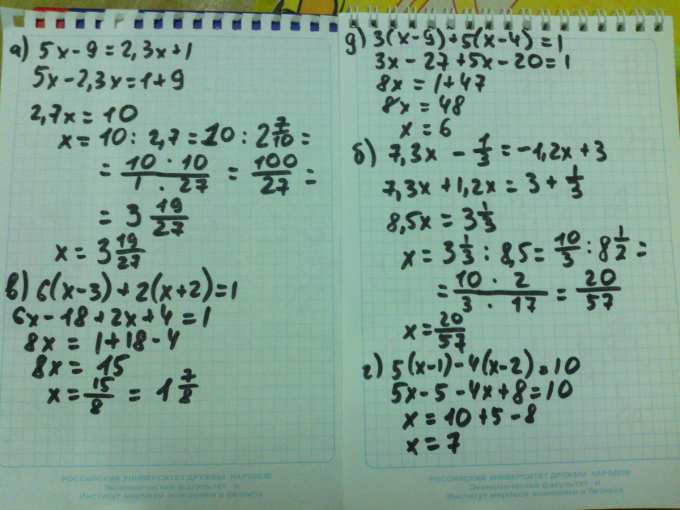 а) 5x - 9 = 2,3x + 1
5x - 2,3x = 1 + 9
2,7x = 10
x = 10 : 2,7 = 10 : 2 7/10 =
= 10 · 10 / 1 · 27 = 100/27 =
= 3 19/27
x = 3 19/27
в) 6(x - 3) + 2(x + 2) = 1
6x - 18 + 2x + 4 = 1
8x = 1 + 18 - 4
8x = 15
x = 15/8 = 1 7/8
РОССИЙСКИЙ УНИВЕРСИТЕТ ДРУЖБЫ НАРОДОВ
Экономический факультет и
Институт мировой экономики и бизнеса
д) 3(x - 9) + 5(x - 4) = 1
3x - 27 + 5x - 20 = 1
8x = 1 + 47
8x = 48
x = 6
б) 7,3x - 1/3 = -1,2x + 3
7,3x + 1,2x = 3 + 1/3
8,5x = 3 1/3
x = 3 1/3 : 8,5 = 10/3 : 8 1/2 =
= 10 · 2 / 3 · 17 = 20/57
x = 20/57
г) 5(x - 1) - 4(x - 2) = 10
5x - 5 - 4x + 8 = 10
x = 10 + 5 - 8
x = 7
РОССИЙСКИЙ УНИВЕРСИТЕТ ДРУЖБЫ НАРОДОВ
Экономический факультет и
Институт мировой экономики и бизнеса